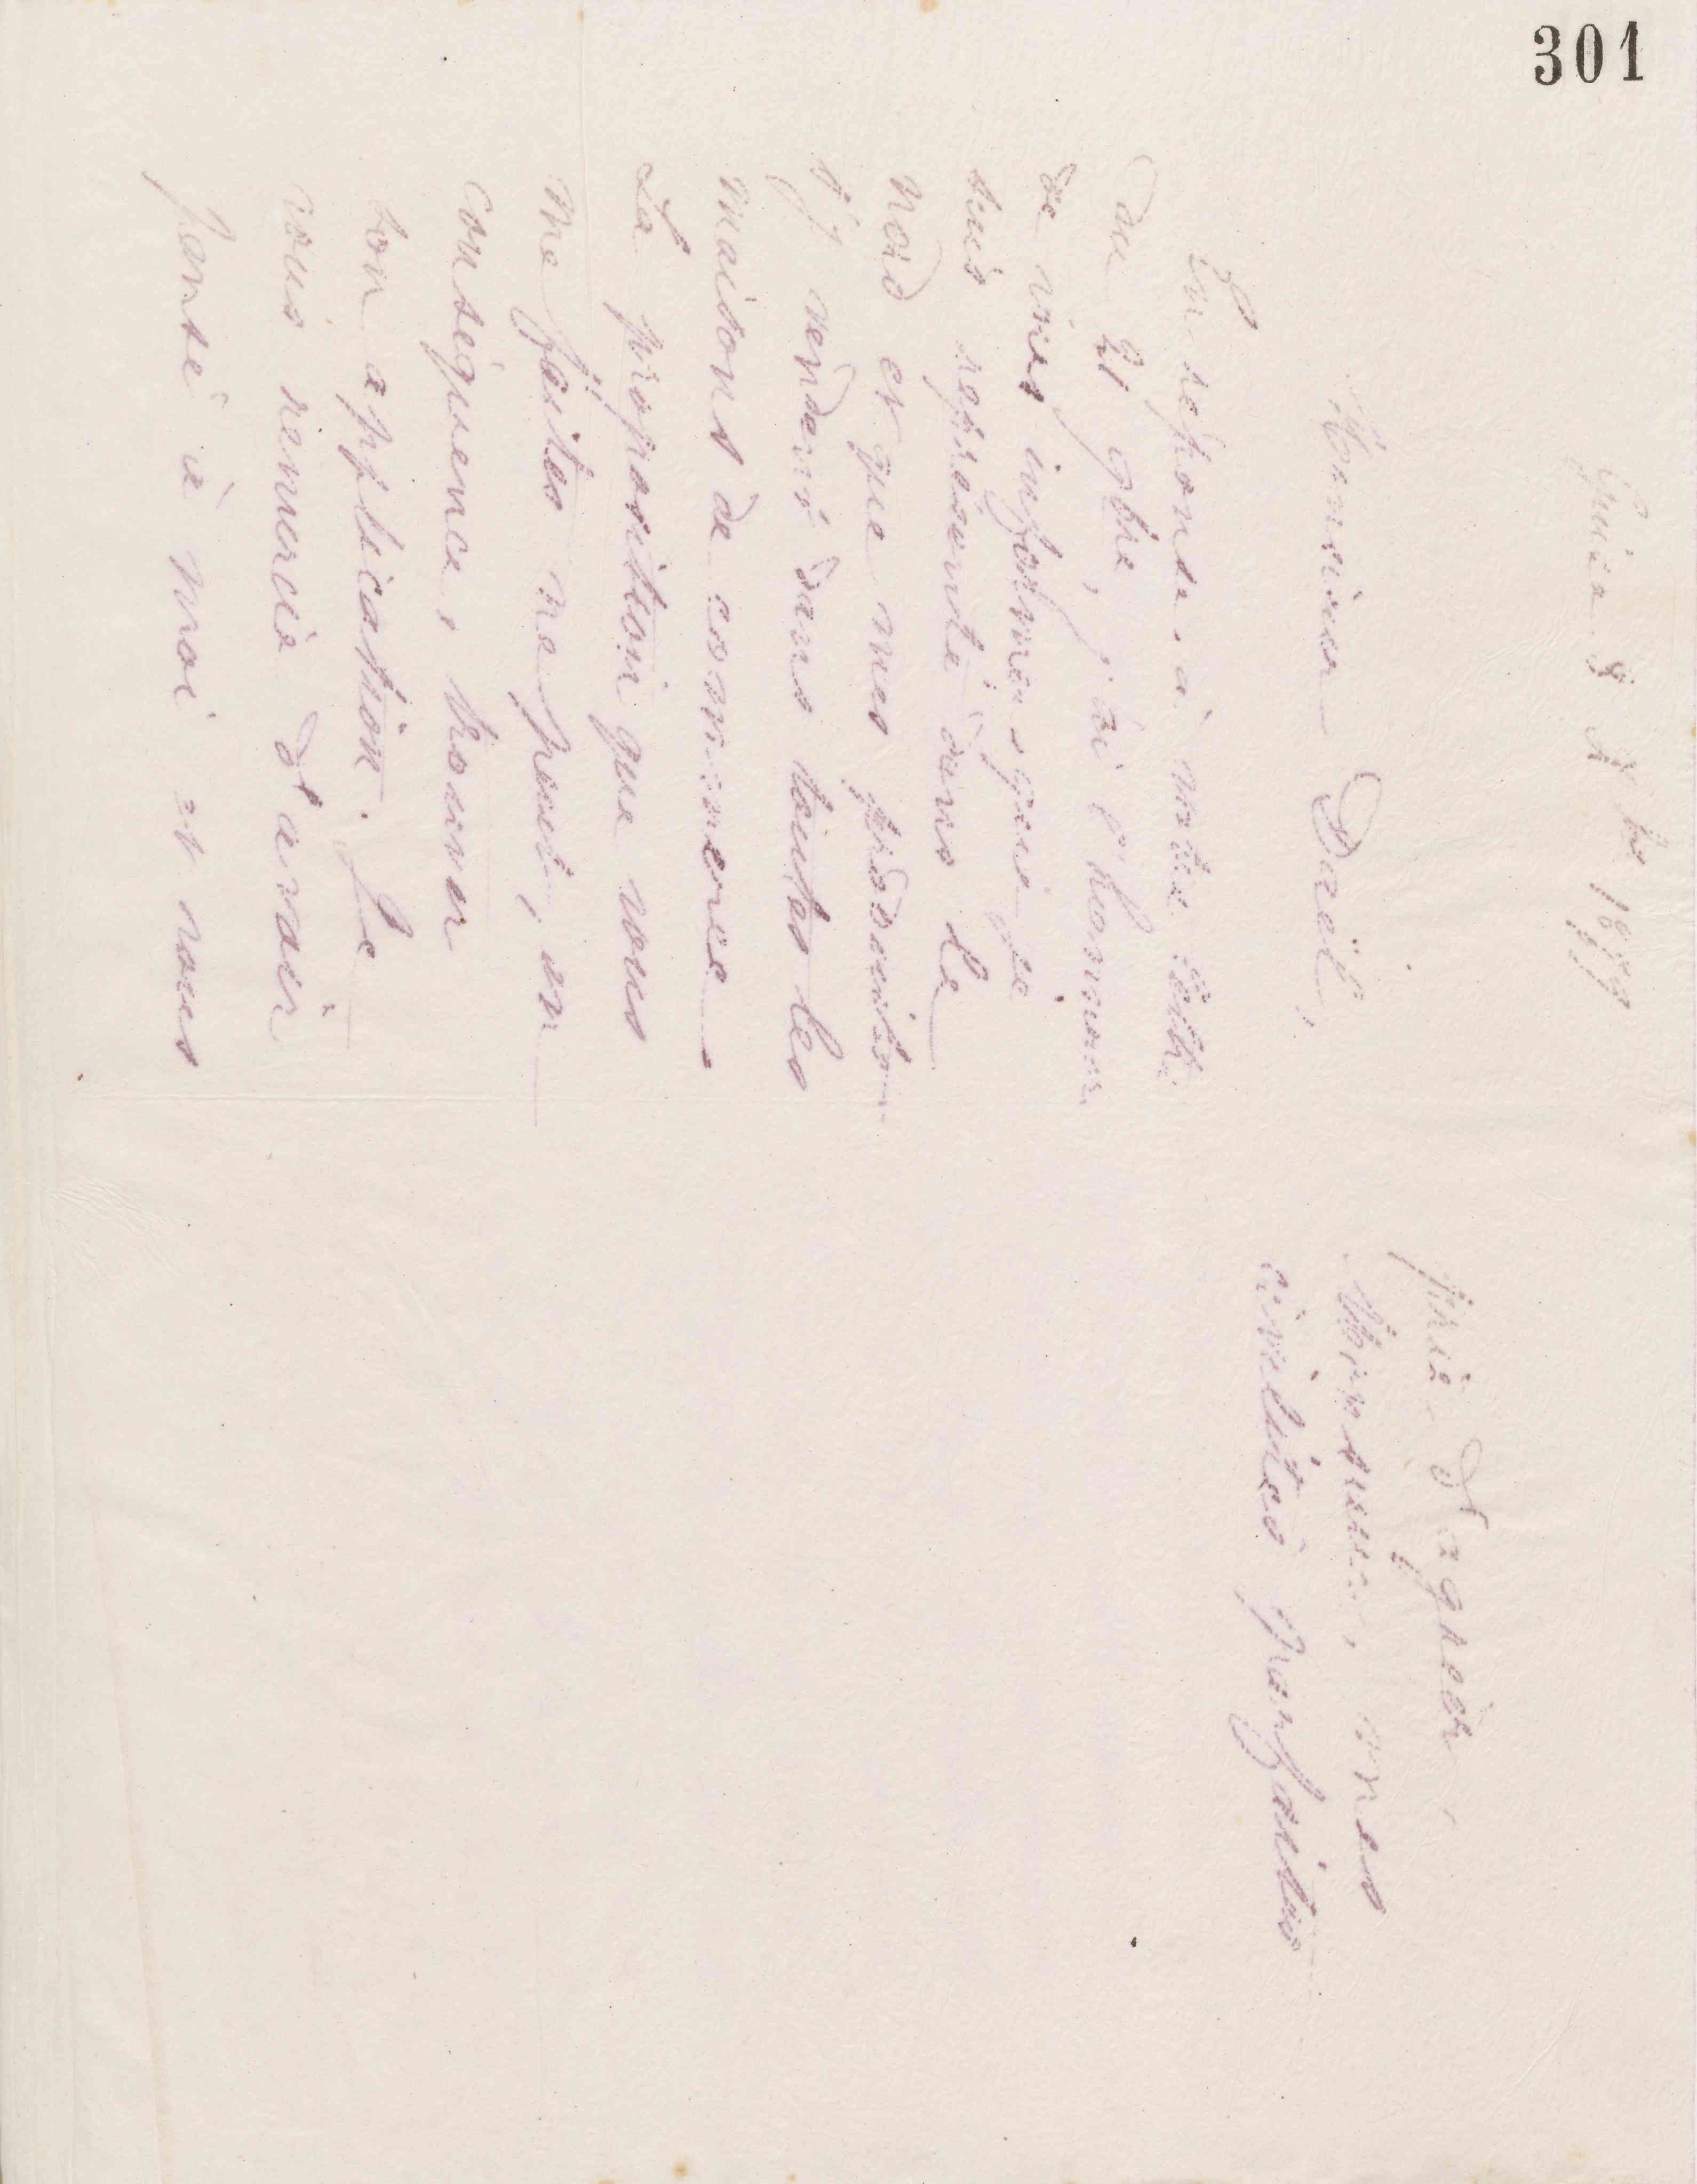 301
Guise 1877
Monsieur Daël,
En réponse à votre lettre
du 21 9bre, j'ai l'honneur
de vous informer que je
suis représenté dans le
nord et que mes produits
s'y vendent dans toutes les
maisons de commerce.
La proposition que vous
me faites ne peut, en
conséquence, trouver
son application. Je
vous remercie d'avoir
pensé à moi et vous
prie d'agréer,
Monsieur, mes
civilités parfaites